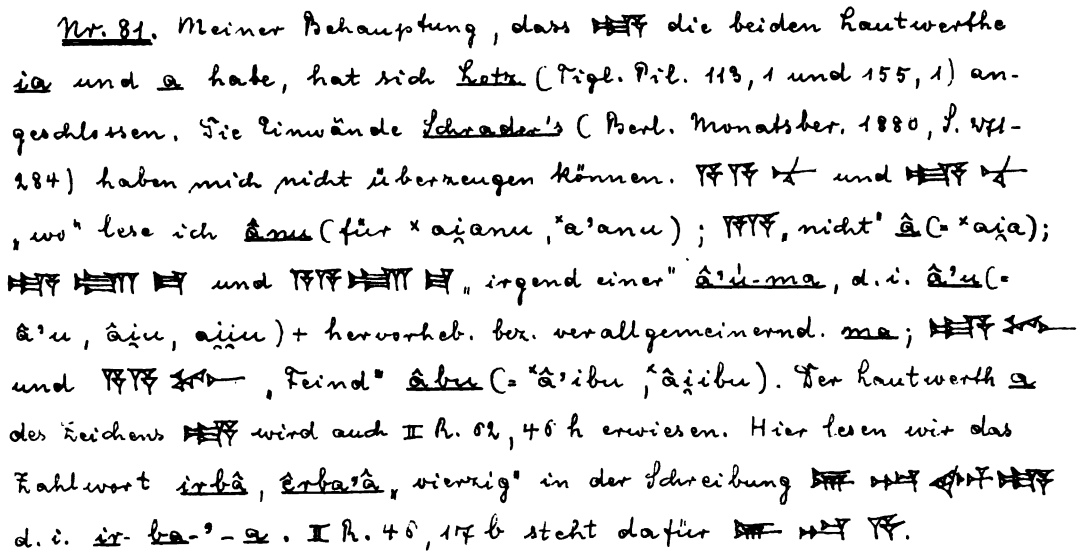 Nr. 81. Meiner Behauptung, dass 𒅀 die beiden Lautwerthe
ia und a habe, hat sich Lotz (Tigl. Pil. 113, 1 und 155, 1) an-
geschlossen. Die Einwände Schrader's (Berl. Monatsber. 1880, S. 271-
284) haben mich nicht überzeugen können. 𒀀𒀀 𒉡 und 𒅀 𒉡
„wo“ lese ich ânu (für ˣ ai̯anu, ˣa’anu); 𒀀𒀀 „nicht“ â (= ˣai̯a);
𒅀 𒌑 𒈠 und 𒀀𒀀 𒌑 𒈠 „irgend einer“ â’ú-ma, d. i. â’u (=
â’u, âi̯u, ai̯i̯u) + hervorheb. bez. verallgemeinernd. ma; 𒅀 𒁍
und 𒀀𒀀 𒁍 „Feind“ âbu (= ˣâ’ibu, ˣâi̯ibu). Der Lautwerth a
des Zeichens 𒅀 wird auch II R. 62, 46 h erwiesen. Hier lesen wir das
Zahlwort irbâ, êrba’â „vierzig“ in der Schreibung 𒅕 𒁀 𒀪 𒅀
d. i. ir-ba-’-a. II R. 46, 17 b steht dafür 𒅕 𒁀 𒀀.